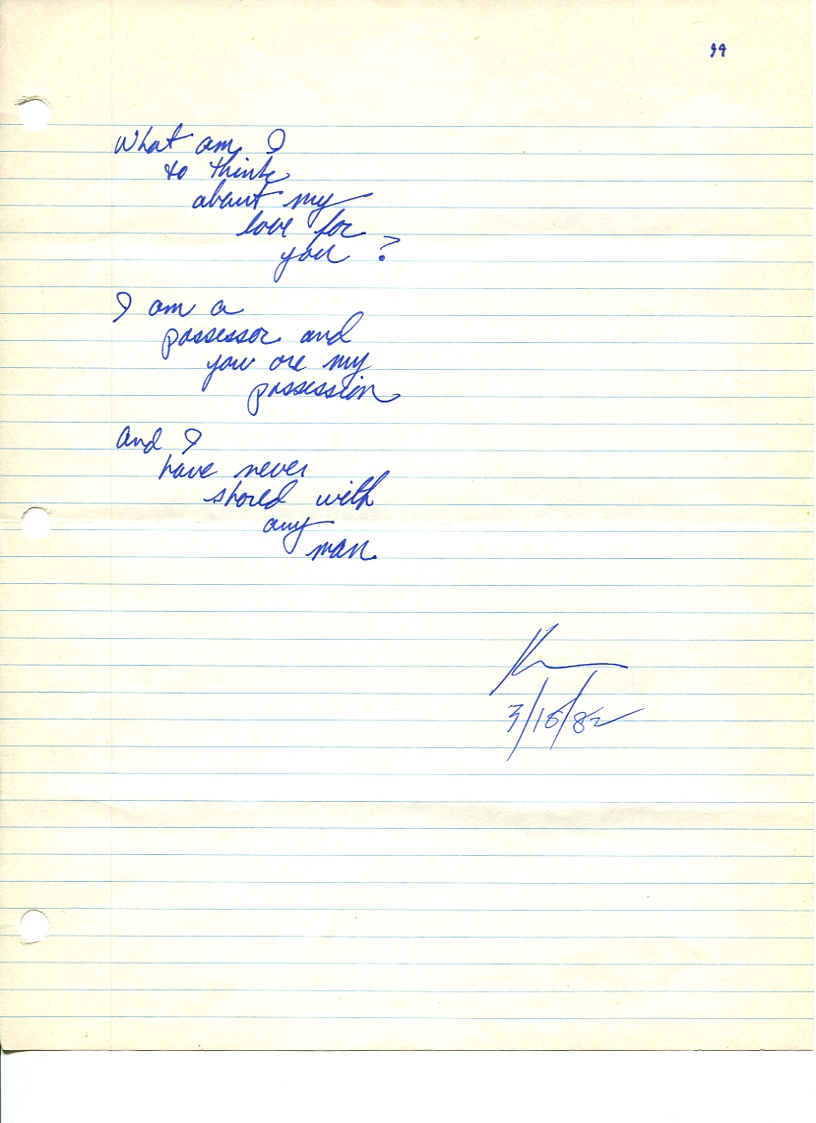 99
What am I
to think
about my
love for
you ?
I am a
possessor and
you are my
possession
and I
have never
shared with
any
man.
3/15/82